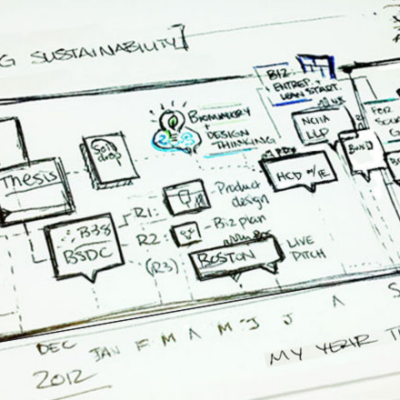 G SUSTAINABILITY
BIZ
+ ENTREP.
LEAN START.
BIOMIMICRY
+
DESIGN
THINKING
NCIIA
LLP
FOR
SOLD
DROP
THESIS
HCD w/IE
R1:
Product
design
B38
BSDC
R2:
Biz plan
(R3)
BOSTON
LIVE
PITCH
DEC
JAN F M A M J J A S
2012
MY YEAR T